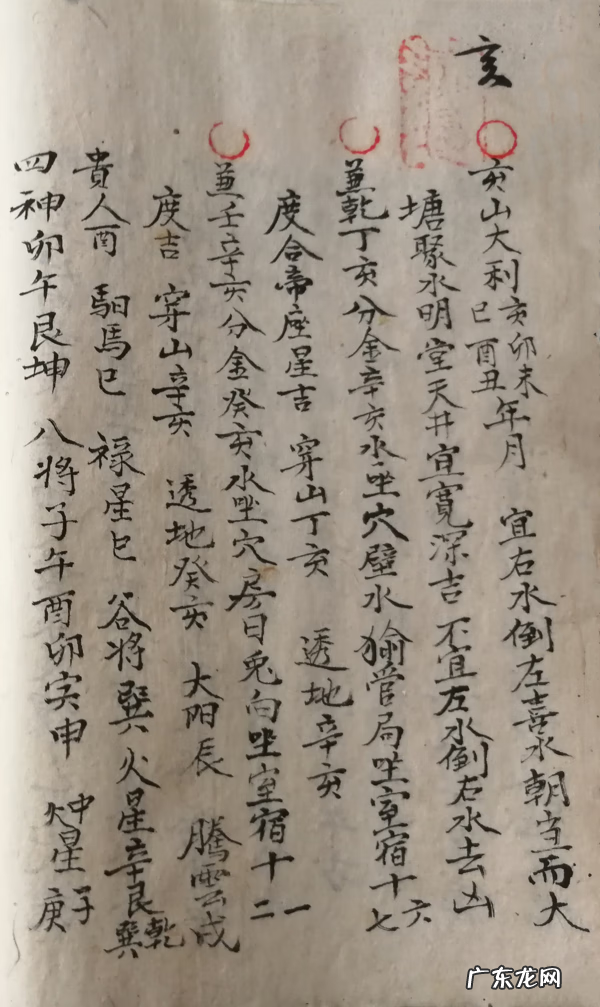 亥
亥山大利亥卯未巳酉丑年月 宜右水倒左喜水朝堂而大
塘聚水明堂天井宜寬深吉不宜左水倒右水去凶
兼乾丁亥分金辛亥水坐穴壁水㺄管局坐室宿十六七
度合帝座星吉 穿山丁亥 透地辛亥
兼壬辛亥分金癸亥水坐穴房日兎向坐室宿十一二
度吉 穿山辛亥 透地癸亥 大阳辰 騰雲戌
貴人酉 馹馬巳 祿星巳 谷将巽 火星辛艮乾巽
四神卯午艮坤 八將子午酉卯寅申 星子庚
广东龙网